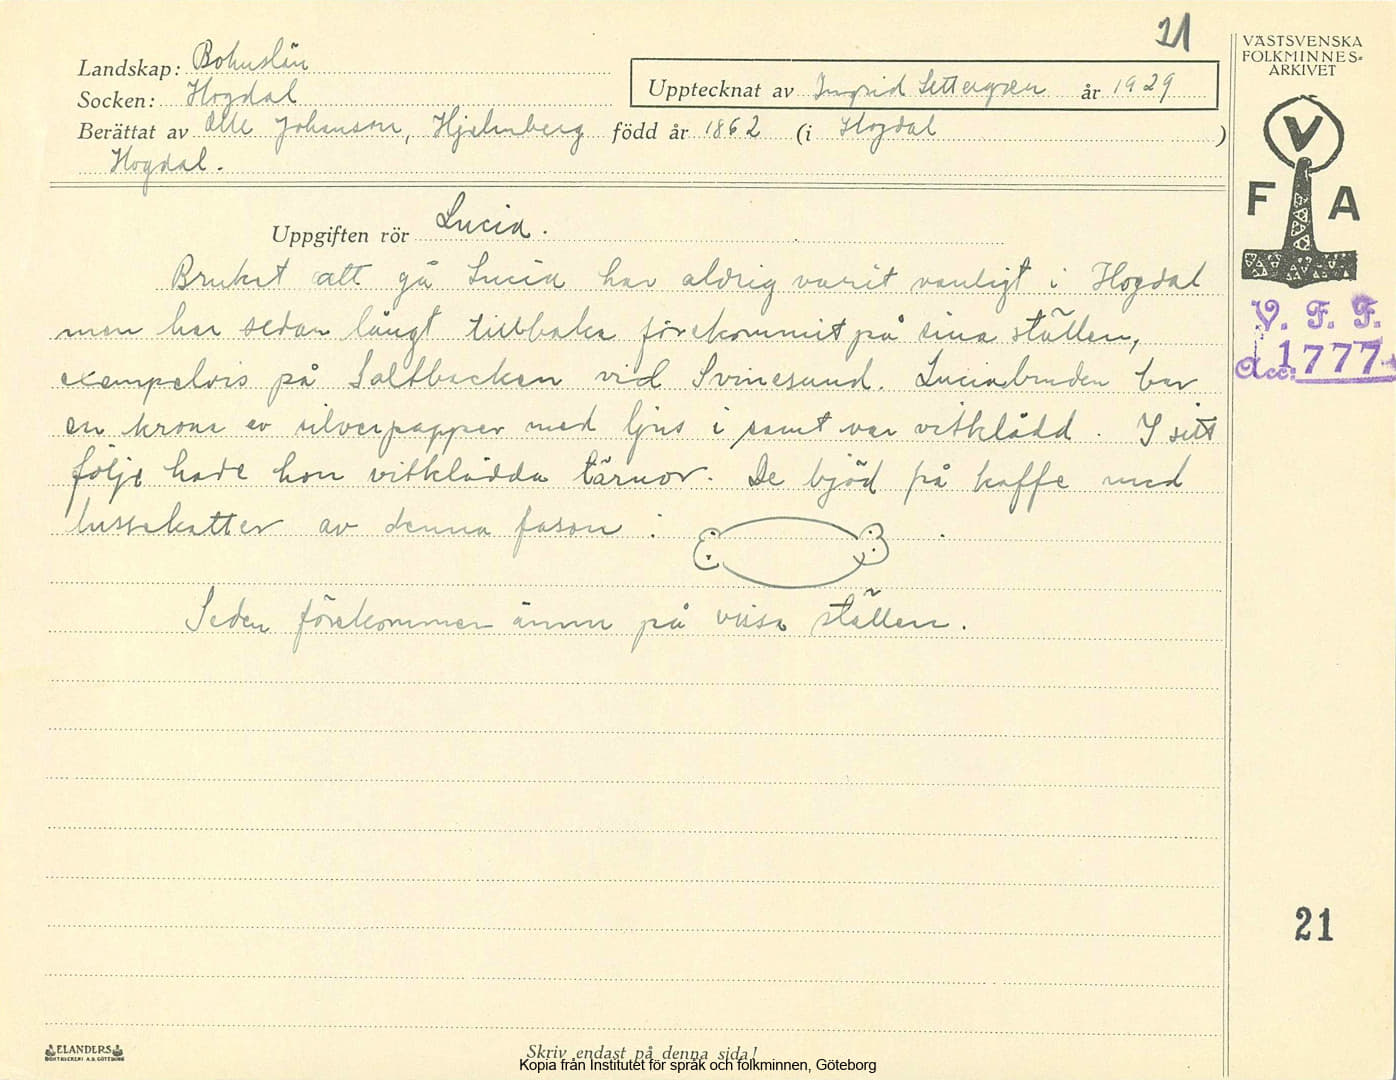 21
Landskap: Bohuslän
Socken: Hogdal
Upptecknat av Ingrid Settergren år 1929
Berättat av Olle Johanson, Hjelmberg född år 1862 (i Hogdal )
Hogdal.
VÄSTSVENSKA
FOLKMINNES-
ARKIVET
V
F A
V. F. F.
Acc. 1777
Uppgiften rör Lucia.
Bruket att gå Lucia har aldrig varit vanligt i Hogdal
men har sedan långt tillbaka förekommit på sina ställen,
exempelvis på Saltbacken vid Svinesund. Luciabruden bar
en krona av silverpapper med ljus i samt var vitklädd. I sitt
följe hade hon vitklädda tärnor. De bjöd på kaffe med
lussekatter av denna fason :
Seden förekommer ännu på vissa ställen.
21
ELANDERS
BOKTRYCKERI A.B. GÖTEBORG
Skriv endast på denna sida!
Kopia från Institutet för språk och folkminnen, Göteborg